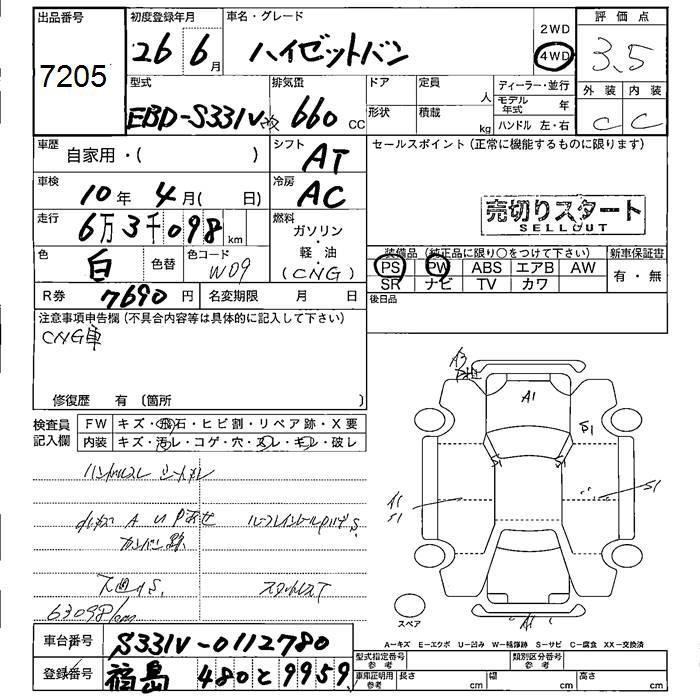 出品番号 初度登録年月 車名・グレード 2WD 評価点
7205 26年 6月 ハイゼットバン 4WD 3.5
型式 排気量 ドア 定員 人 ディーラー・並行 外装 内装
EBD-S331V 改 660 CC 形状 積載 kg モデル年式 年 C C
ハンドル 左・右
車歴 自家用・( ) シフト AT セールスポイント(正常に機能するものに限ります)
車検 10年 4月( 日) 冷房 AC
売切りスタート
SELLOUT
走行 6万3千098 km 燃料 ガソリン・軽油 (CNG)
色 白 色替 色コード W09
装備品(純正品に限り○をつけて下さい) 新車保証書
PS PW ABS エアB AW 有・無
SR ナビ TV カワ
R券 7690円 名変期限 月 日 後日品
注意事項申告欄(不具合内容等は具体的に記入して下さい)
CNG車
修復歴 有 (箇所 )
検査員記入欄 FW キズ・飛石・ヒビ割・リペア跡・X要
内装 キズ・汚レ・コゲ・穴・スレ・キレ・破レ
ハンドルスレ シートスレ
63098km
A3
A1
S1
S1 S1
A1
S1
S1
A1
スペア
A-キズ E-エクボ U-凹み W-補修跡 S-サビ C-腐食 XX-交換済
車台番号 S331V-0112780
型式指定番号 参考 類別区分番号 参考
登録番号 福島 480と9959
車庫証明用 参考 長さ cm 幅 cm 高さ cm